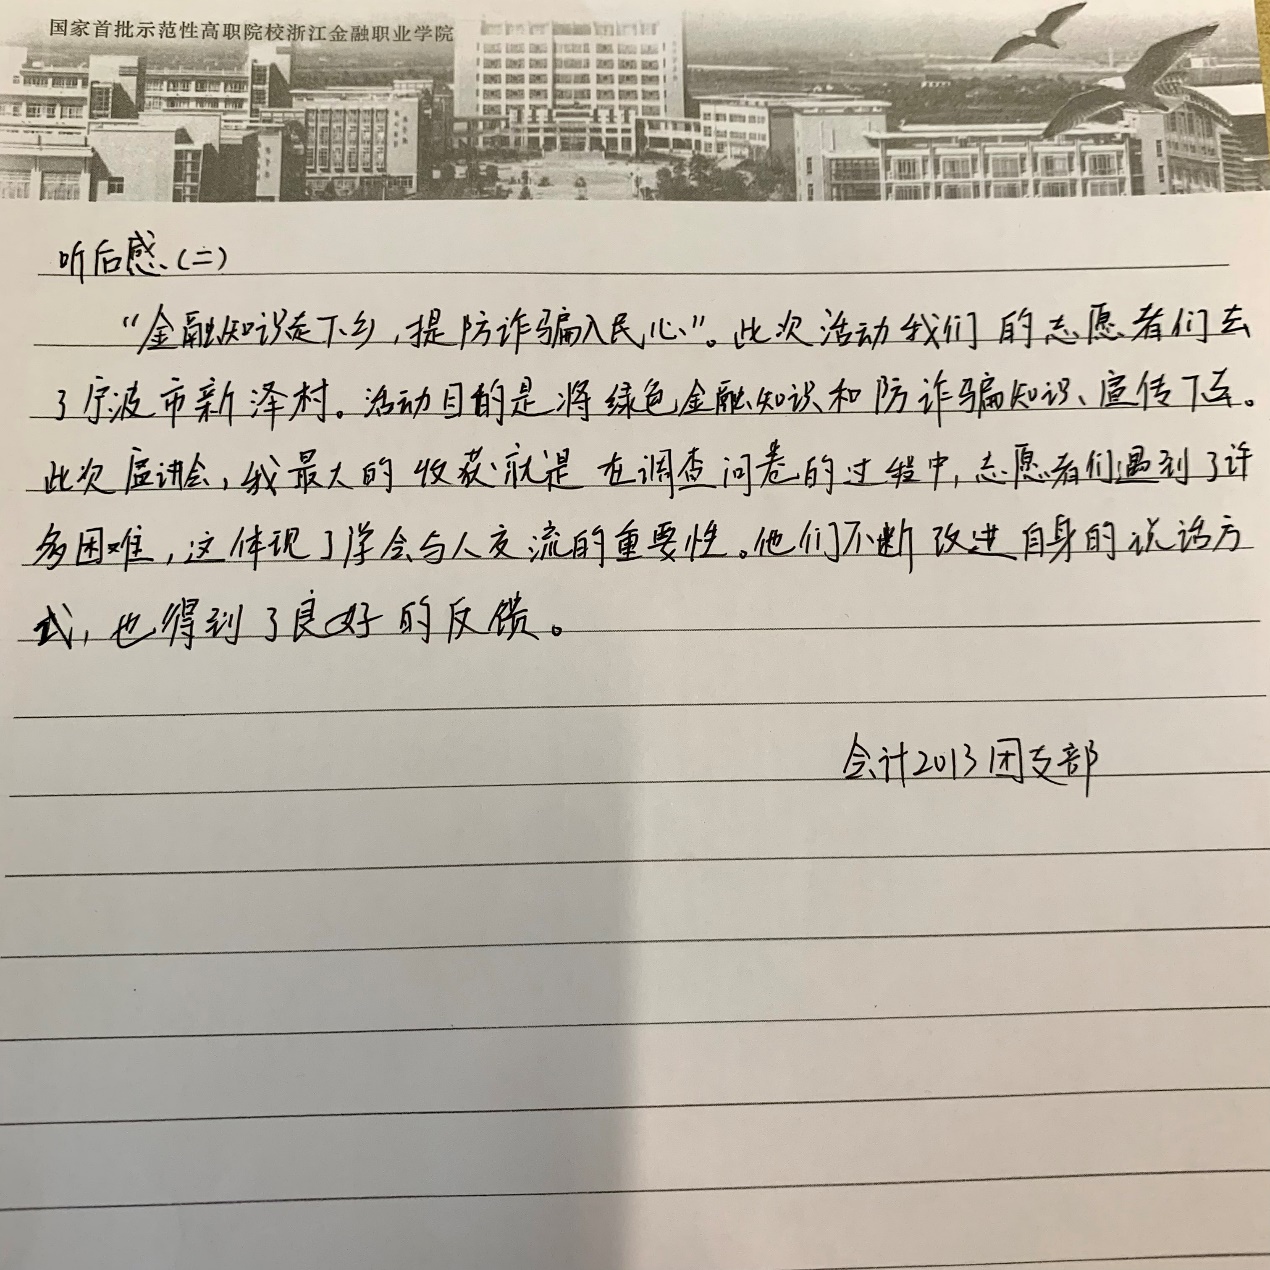 国家首批示范性高职院校浙江金融职业学院
听后感(二)
“金融知识走下乡,提防诈骗入民心”。此次活动我们的志愿者们去
了宁波市新泽村。活动目的是将绿色金融知识和防诈骗知识、宣传下去。
此次宣讲会,我最大的收获就是在调查问卷的过程中,志愿者们遇到了许
多困难,这体现了学会与人交流的重要性。他们不断改进自身的说话方
式,也得到了良好的反馈。
会计2013团支部